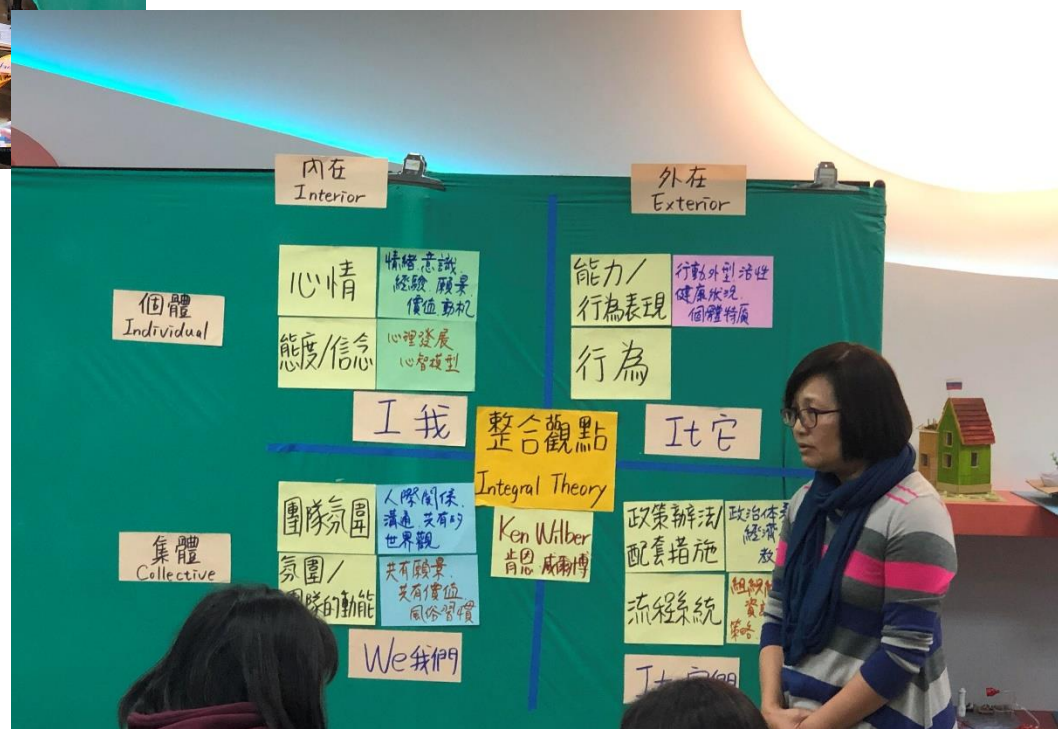 內在
Interior
外在
Exterior
個體
Individual
心情
情緒.意識
經驗.願景
價值.動机
態度/信念
心理發展
心智模型
I 我
能力/
行為表現
行動.外型.活性
健康狀況.
個體特質
行為
It 它
整合觀點
Integral Theory
Ken Wilber
肯恩 威爾博
集體
Collective
團隊氛圍
人際関係.
溝通.共有的
世界觀
氛圍/
團隊的動能
共有願景.
共有價值
風俗習慣
We我們
政策辦法/
配套措施
政治体
經濟
流程系統
組織
策略
It 它們